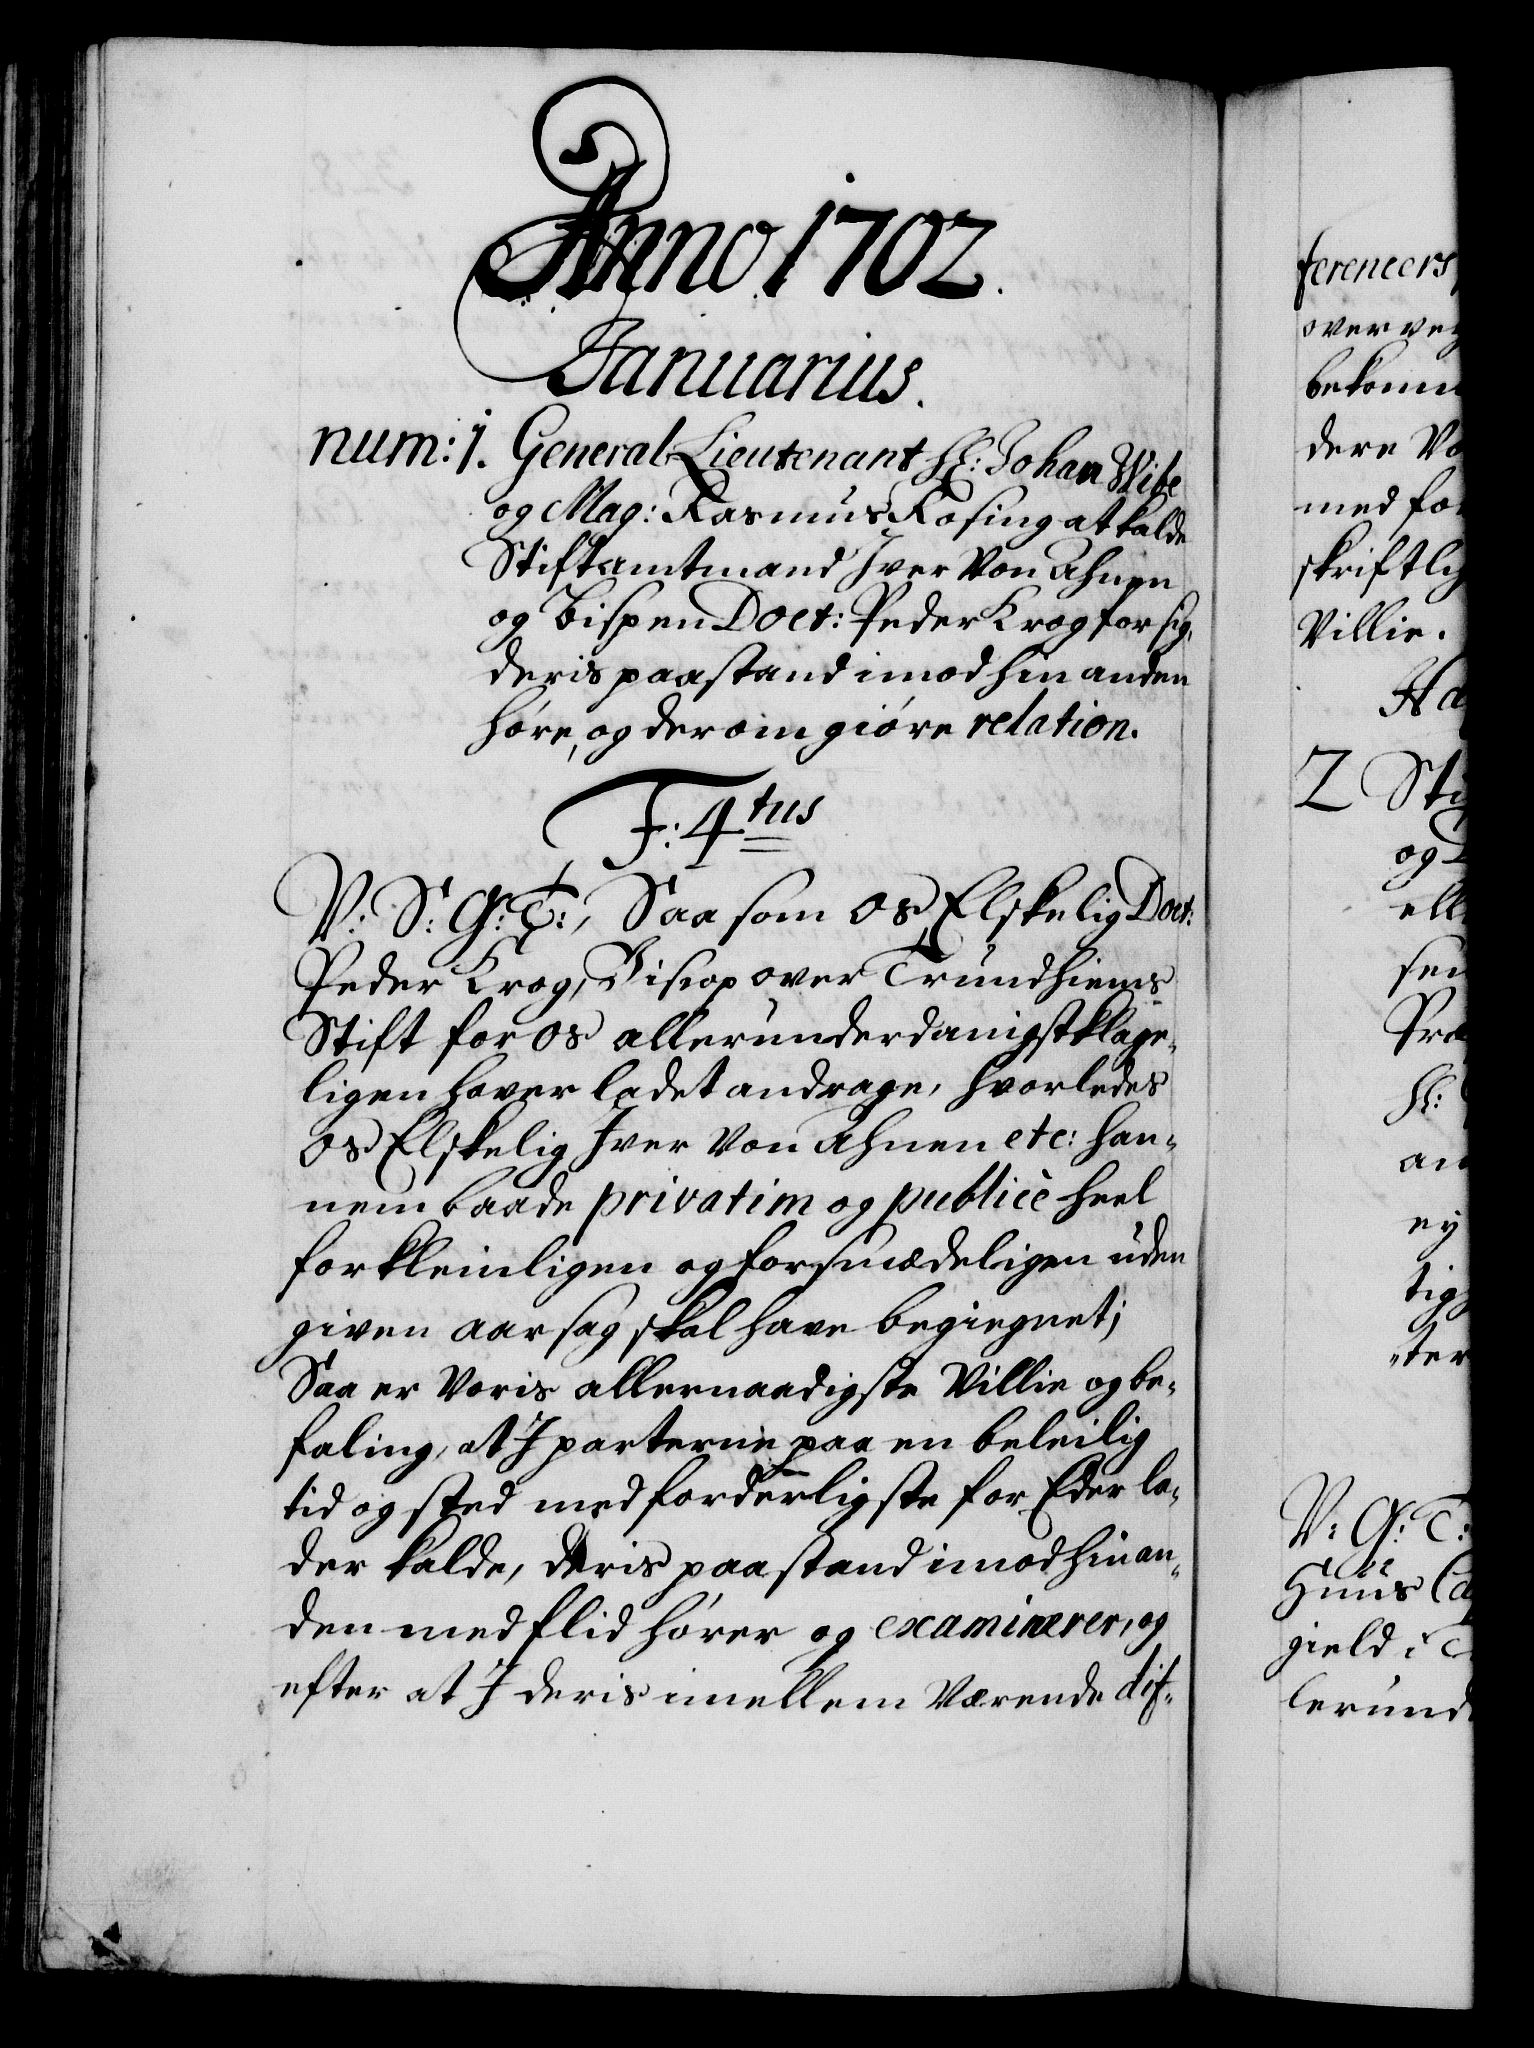 Anno 1702.
Januarius.
num: 1. General Lieutenant H: Johan Wibe
og Mag: Rasmus Rosing at kalde
Stiftamtmand Iver Von Ahnen
og Bispen Doct: Peder Krog for sig,
deris paastand imod hin anden
høre, og derom giøre relation.
F: 4tus
V. S: G: T:, Saa som Os Elskelig Doct:
Peder Krog, Biscop over Trundhiems
Stift for Os allerunderdanigst klage-
ligen haver ladet andrage, hvorledes
Os Elskelig Iver Von Ahnen etc: han-
nem baade privatim og publicè heel
forkleinligen og forsmædeligen uden
given aarsag skal have begiegnet;
Saa er Voris allernaadigste Villie og be-
faling, at I parterne paa en beleilig
tid og sted med forderligste for Eder la-
der kalde, deris paastand imod hin an-
den med flid hører og examinerer, og
efter at I deris imellem Værende dif-
ferencers
over vey
bekomm
dere Vo
med for
skriftlig
Villie.
2 Sti
og
ell
sen
Præ
H:
an
ey
tig
ter
V: G: T:
Huus Ca
gield i T
lerund